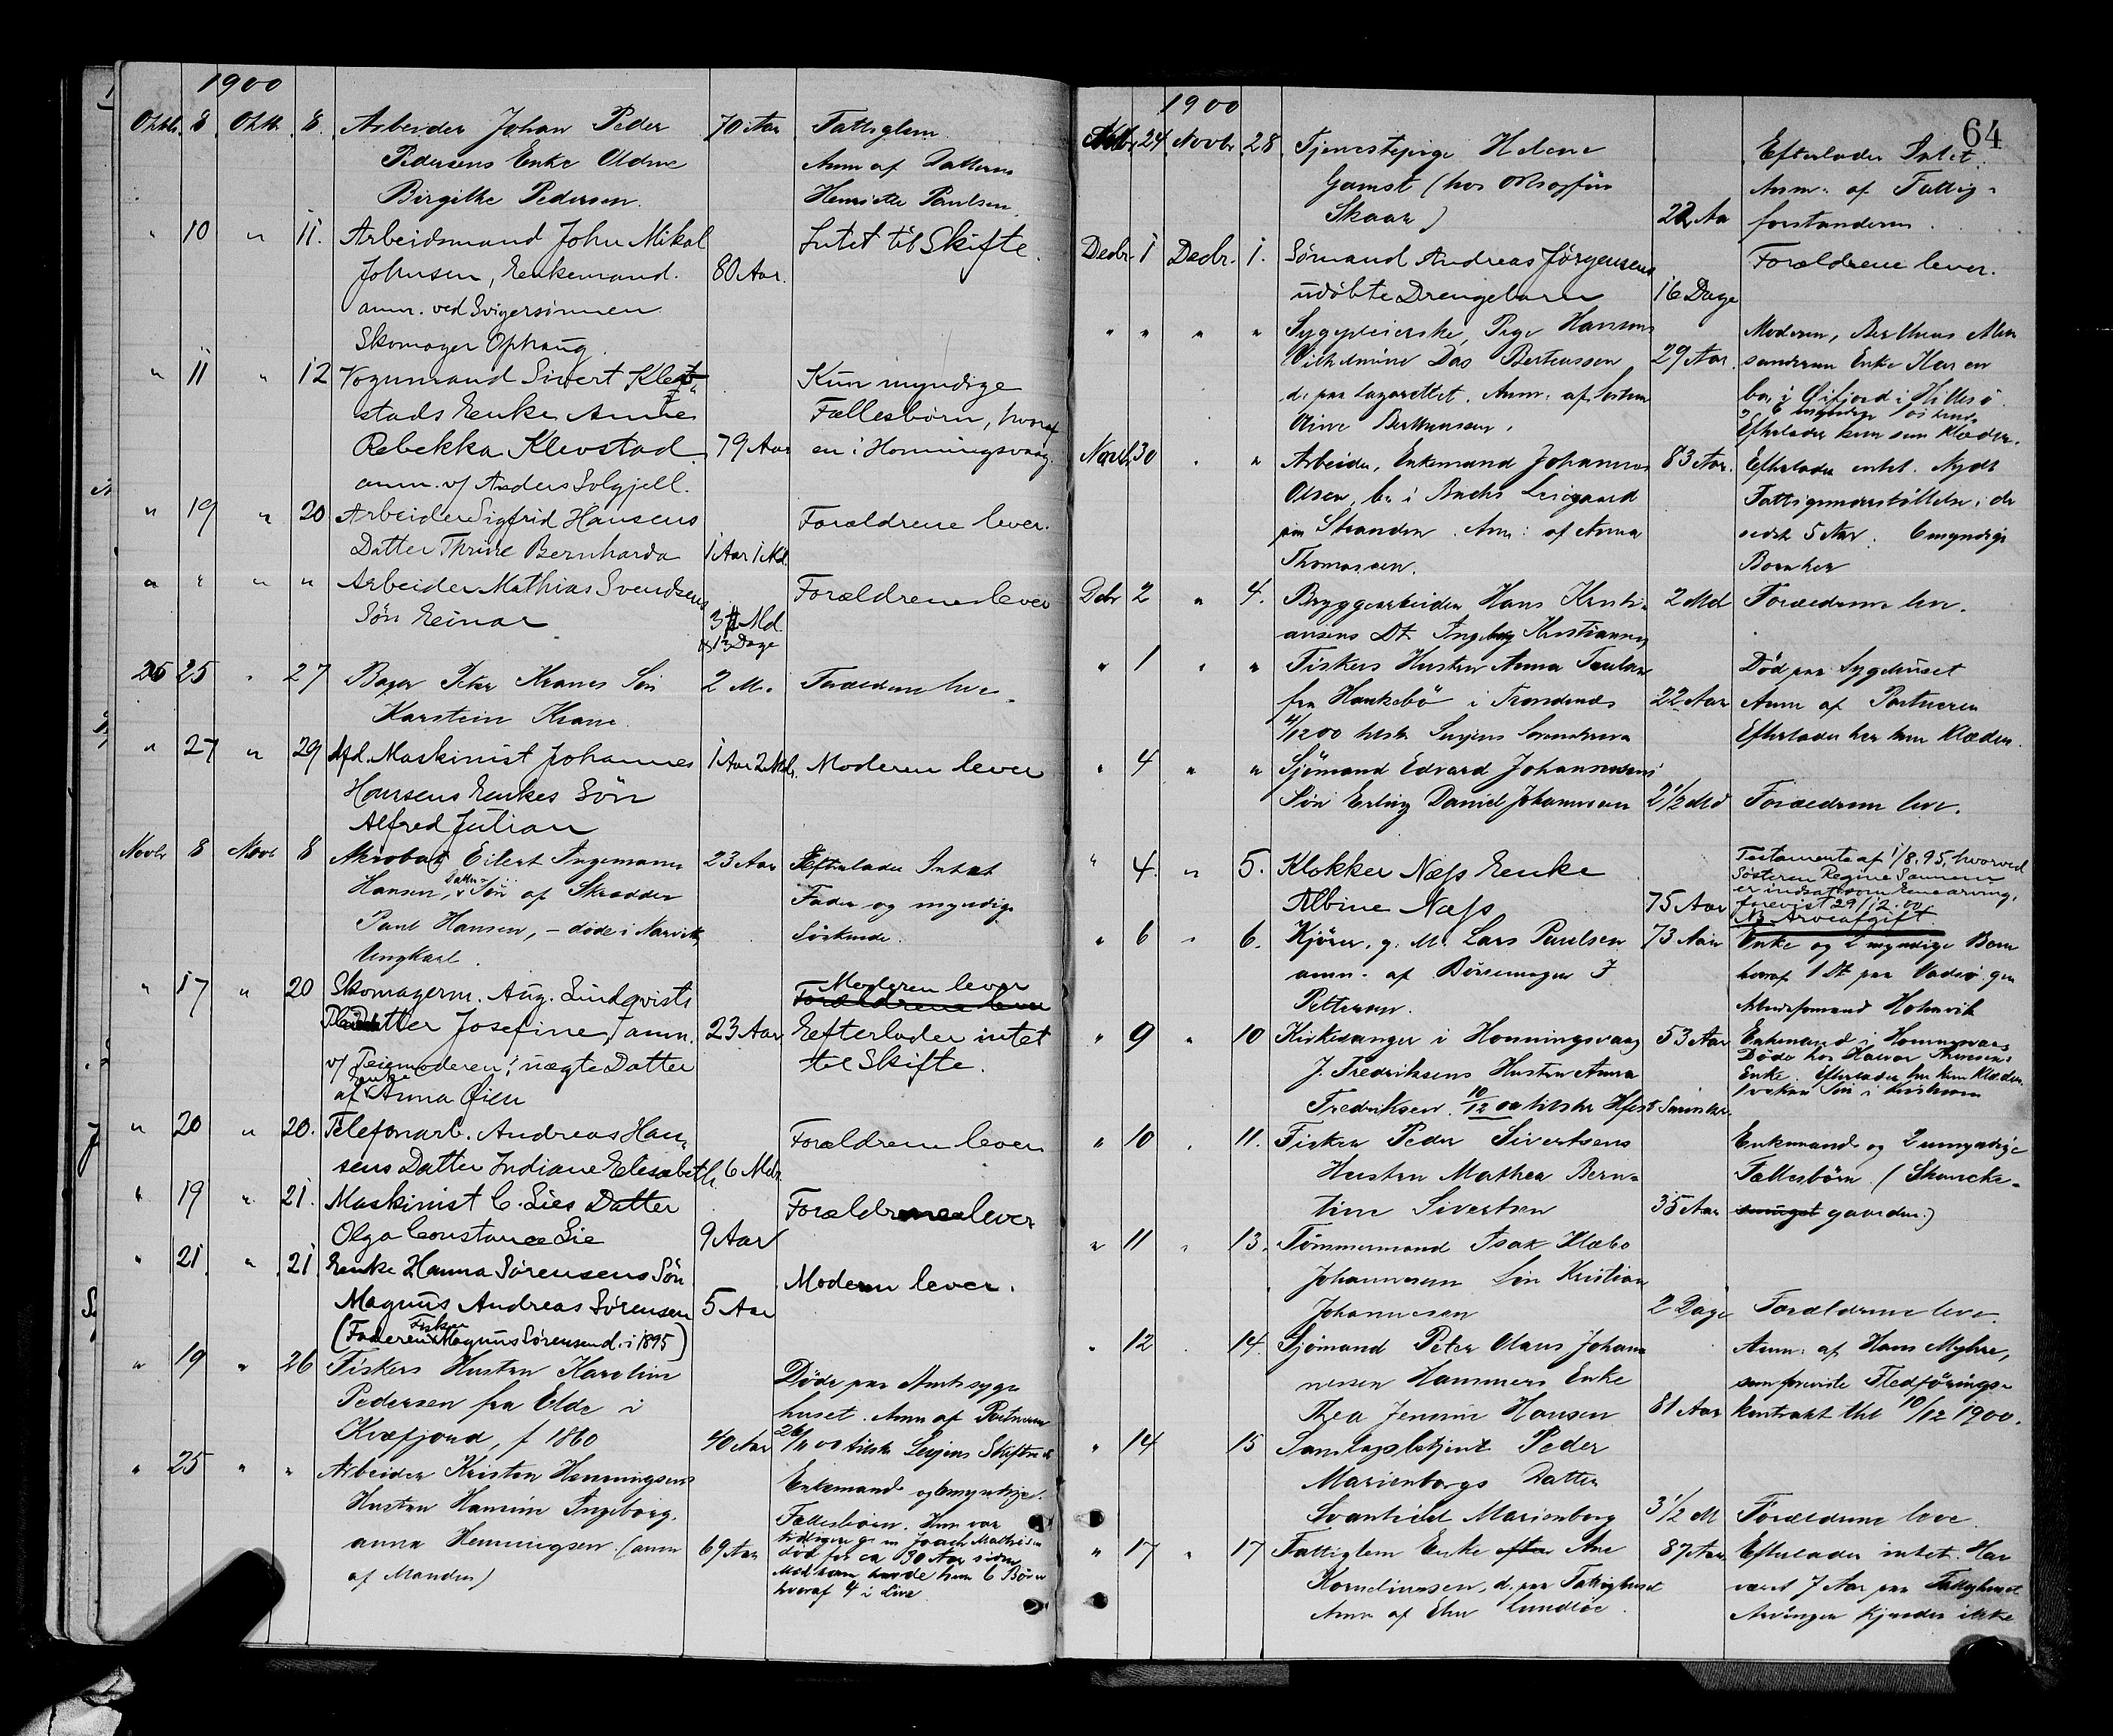 1900
Oktbr. 8 Oktb. 8. Arbeider Johan Peder 70 Aar Fattiglem.
Pedersens Enke Aldine Anm af Datteren
Birgitte Pedersen. Henriette Paulsen.
" 10 " 11. Arbeidsmand John Mikal Intet til Skifte.
Johnsen, Enkemand. 80 Aar.
anm. ved Svigersönnen
Skomager Ophaug.
" 11 " 12 Vognmand Sivert Klev- Kun myndige
stads Enke Anne Fællesbörn, hvoraf
Rebekka Klevstad 79 Aar en i Honningsvaag.
anm. v/ Anders Solgjell.
" 19 " 20 Arbeider Sigfrid Hansens Forældrene lever.
Datter Thrine Bernharda 1 Aar 1 Md.
" " " " Arbeider Mathias Svendsens Forældrene lever
Sön Einar 3 Md.
13 Dage
25 " 27 Bager Peter Kranes Sön 2 M. Forældrene leve
Karstein Krane.
" 27 " 29 Afd. Maskinist Johannes 1 Aar 2 Mdr. Moderen lever
Hansens Enkes Sön
Alfred Julian
Novbr 8 Novb 8 Akrobat Eilert Ingemann 23 Aar Efterlader Intet
Hansen, Datter Sön af Skrædder Fader og myndige
Paul Hansen, - döde i Narvik, Söskende.
Ungkarl.
" 17 " 20 Skomagerm. Aug. Lindqvists Moderen lever
Forældrene lever
Pleiedatter Josefine, anm. 23 Aar Efterlader intet
v/ Pleiemoderen; uægte Datter til Skifte.
af Enke Anna Öien
" 20 " 20. Telefonarb. Andreas Han- Forældrene lever
sens Datter Indiane Elesabeth, 6 Mdr.
" 19 " 21. Maskinist C. Lies Datter Forældrene lever
Olga Constance Lie 9 Aar
" 21 " 21 Enke Hanna Sörensens Sön Moderen lever.
Magnus Andreas Sörensen 5 Aar
(Faderen Fisker Magnus Sörensen d. i 1895)
" 19 " 26 Fiskers Hustru Karoline Döde paa Amtssyge
Pedersen fra Elde i huset. Anm af Portneren
Kvæfjord, f 1860 40 Aar 26/11 00 tilskr Senjens Skifteret
" 25 " " Arbeider Kristen Henningsens Enkemand og myndige
Hustru Hansine Ingeborg- Fællesbörn. Hun var
anna Henningsen (anm 69 Aar tidligere g. m Joach Mathisen
af Manden) död for ca 30 Aar siden
Med ham havde hun 6 Börn
hvoraf 4 i Live
64
1900
24 Novbr. 28. Tjenestepige Helene Efterlader Intet.
Gamst (hos Overretssagförer Anm. af Fattig-
Skaar) 22 Aar forstanderen.
Decbr. 1 Decbr. 1. Sömand Andreas Jörgensens Forældrene lever.
udöbte Drengebarn 16 Dage
" " " " Sygepleierske, Pige Hansine Moderen, Bertheus
Vilhelmine Das Bertheussen 29 Aar. Enke Karen
d. paa Lazarettet. Anm. af Sösteren bor i Öifjord i Hillesö
Bertheussen. 6 myndige Söskende
Efterlader kun sine Klæder.
Novb. 30 " " Arbeider, Enkemand Johannes 83 Aar. Efterlader intet. Nydt
Olsen, bor i Bachs Leiegaard Fattigunderstöttelse i de
paa Stranden. Anm: af Anna sidste 5 Aar. 6 myndige
Thomassen. Börn her
Decbr 2 " 4. Bryggearbeider Hans Kristi- 2 Md Forældrene lev.
ansens Dt. Ingeborg Kristiansen
" 1 " " Fiskers Hustru Anna Paulsen Död paa Sygehuset
fra Haukebö i Trondenæs 22 Aar Anm af Portneren
4/12 00 tilskr Senjens Sorenskriver Efterlader her kun Klæder.
" 4 " " Sjömand Edvard Johannesens
Sön Erling Daniel Johannesen 2 1/2 Md Forældrene leve.
" 4. " 5. Klokker Næss Enke Testamente af 1/8.95, hvorved
Albine Næss 75 Aar Sösteren Regine Sannem
er indsat som Enearving,
forevist 29/12.00
NB Arveafgift
" 6 " 6. Kjörer, g. M. Lars Paulsen 73 Aar Enke og 2 myndige Börn
anm. af Börsemager J hvoraf 1 Dt paa Vadsö gm
Pettersen. Arbeidsmand Holmvik
" 9 " 10 Kirkesanger i Honningsvaag 53 Aar Enkemand i Honningsvaag
J. Fredriksens Hustru Anna Döde hos Halvor Arnesens
Fredriksen. 10/12 00 tilskr Hfest Enke. Efterlader her kun Klæder
1 voksen Sön i
" 10 " 11. Fisker Peder Sivertsens Enkemand og 2 umyndige
Hustru Mathea Bern- Fællesbörn. (Skancke-
tine Sivertsen 35 Aar gaarden.)
" 11 " 13. Tömmermand Isak Klæbo
Johannesen Sön Kristian
Johannesen 2 Dage Forældrene leve.
" 12 " 14. Sjömand Peter Olaus Johan- Anm: af Hans Myhre,
nesen Hammers Enke som foreviste Fledförings-
Thea Jensine Hansen 81 Aar kontrakt tbl 10/12 1900.
" 14 15 Samlagsbetjent Peder
Marienborgs Datter
Svanhild Marienborg 3 1/2 M Forældrene leve
" 17 " 17 Fattiglem Enke efter Ane 87 Aar Efterlader intet. Har
Korneliussen, d. paa Fattighuset været 7 Aar paa Fattighuset
Anm af Lundløe. Arvinger kjendes ikke